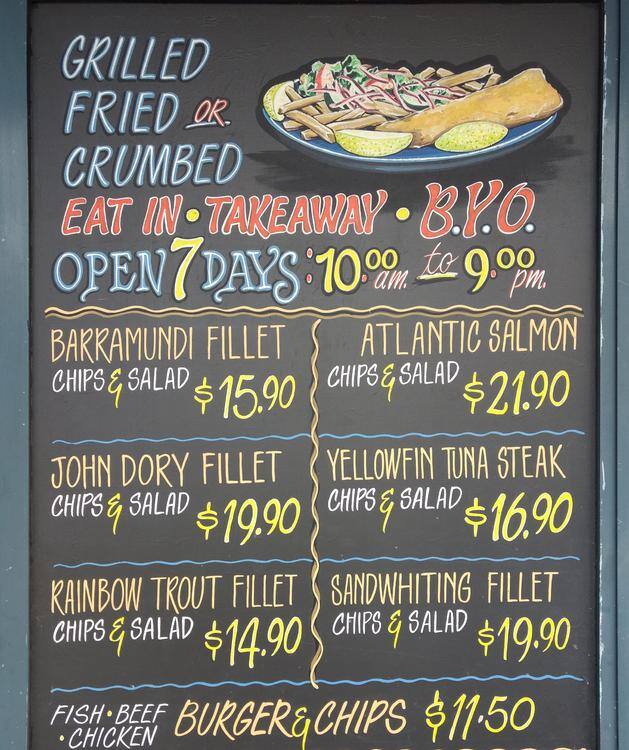 GRILLED
FRIED OR.
CRUMBED
EAT IN • TAKEAWAY • B.Y.O.
OPEN 7 DAYS: 10.00 am. to 9.00 pm.
BARRAMUNDI FILLET
CHIPS & SALAD $15.90
ATLANTIC SALMON
CHIPS & SALAD $21.90
JOHN DORY FILLET
CHIPS & SALAD $19.90
YELLOWFIN TUNA STEAK
CHIPS & SALAD $16.90
RAINBOW TROUT FILLET
CHIPS & SALAD $14.90
SANDWHITING FILLET
CHIPS & SALAD $19.90
FISH • BEEF
• CHICKEN
BURGER & CHIPS $11.50